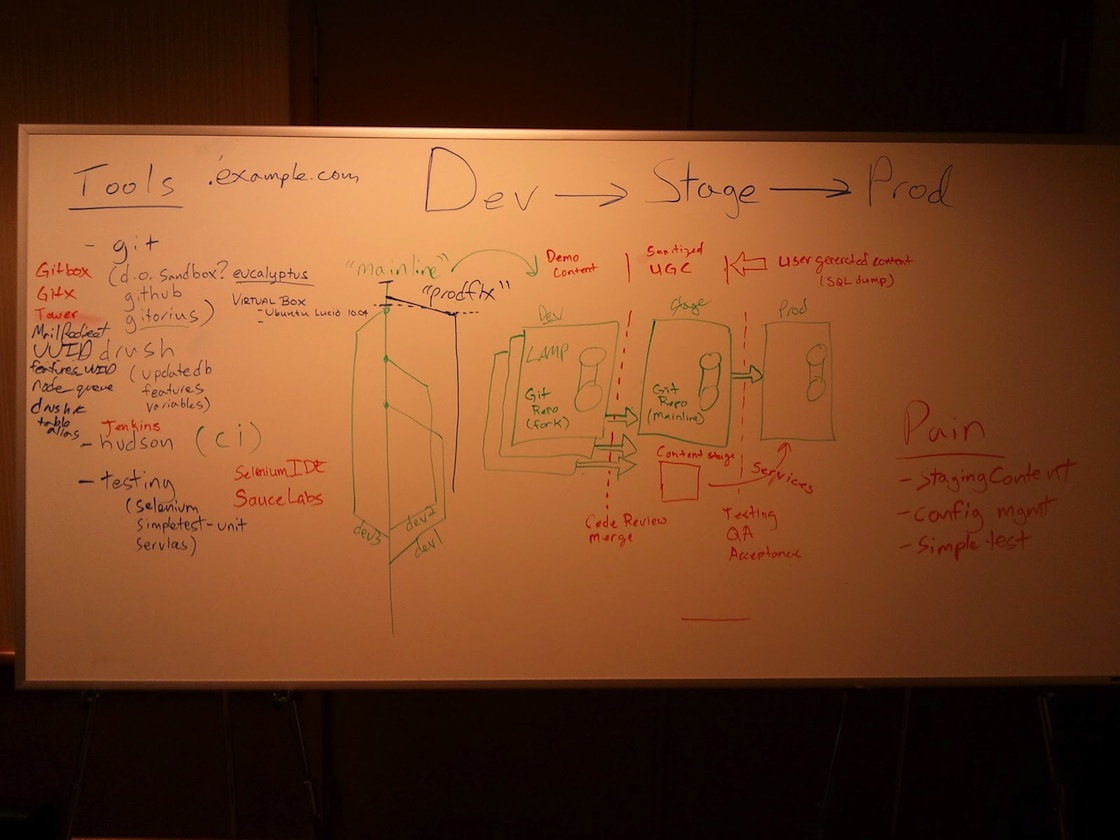 Tools
.example.com
Dev → Stage → Prod
- git
(d.o. sandbox? eucalyptus
github
gitorius)
Gitbox
GitX
Tower
MailRedirect
UUID
features UUID
node queue
drush
(updatedb
features
variables)
table
alias
VIRTUAL BOX
- Ubuntu Lucid 10.04
Jenkins
- hudson (ci)
- testing
(selenium
simpletest-unit
Selenium IDE
Sauce Labs
"mainline"
"prodfix"
dev3
dev2
dev1
Demo
Content
Sanitized
UGC
User generated content
(SQL dump)
Dev
LAMP
Git
Repo
(fork)
Stage
Git
Repo
(mainline)
Prod
Content stage
Services
Code Review
merge
Testing
QA
Acceptance
Pain
- Staging Content
- Config mgmt
- Simple test